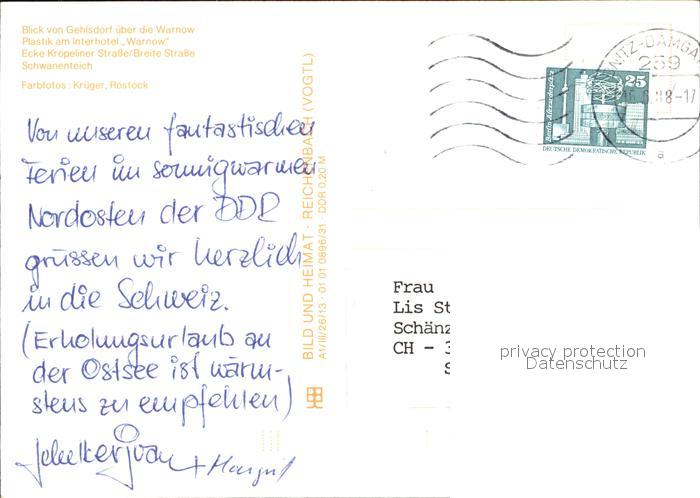 Blick von Gehlsdorf über die Warnow
Plastik am Interhotel „Warnow"
Ecke Kröpeliner Straße/Breite Straße
Schwanenteich
Farbfotos: Krüger, Rostock
Von unseren fantastischen
Ferien im sonnigwarmen
Nordosten der DDR
grüssen wir herzlich
in die Schweiz.
(Erholungsurlaub an
der Ostsee ist wärm-
stens zu empfehlen)
+ Margrit
BILD UND HEIMAT · REICHENBACH (VOGTL)
A1/III/26/13 · 01 01 0896/31 · DDR 0,20 M
NITZ-DAMGA
259
8-17
a
25
Berlin, Alexanderplatz
DEUTSCHE DEMOKRATISCHE REPUBLIK
Frau
Lis St
Schänz
CH - 3
S
privacy protection
Datenschutz